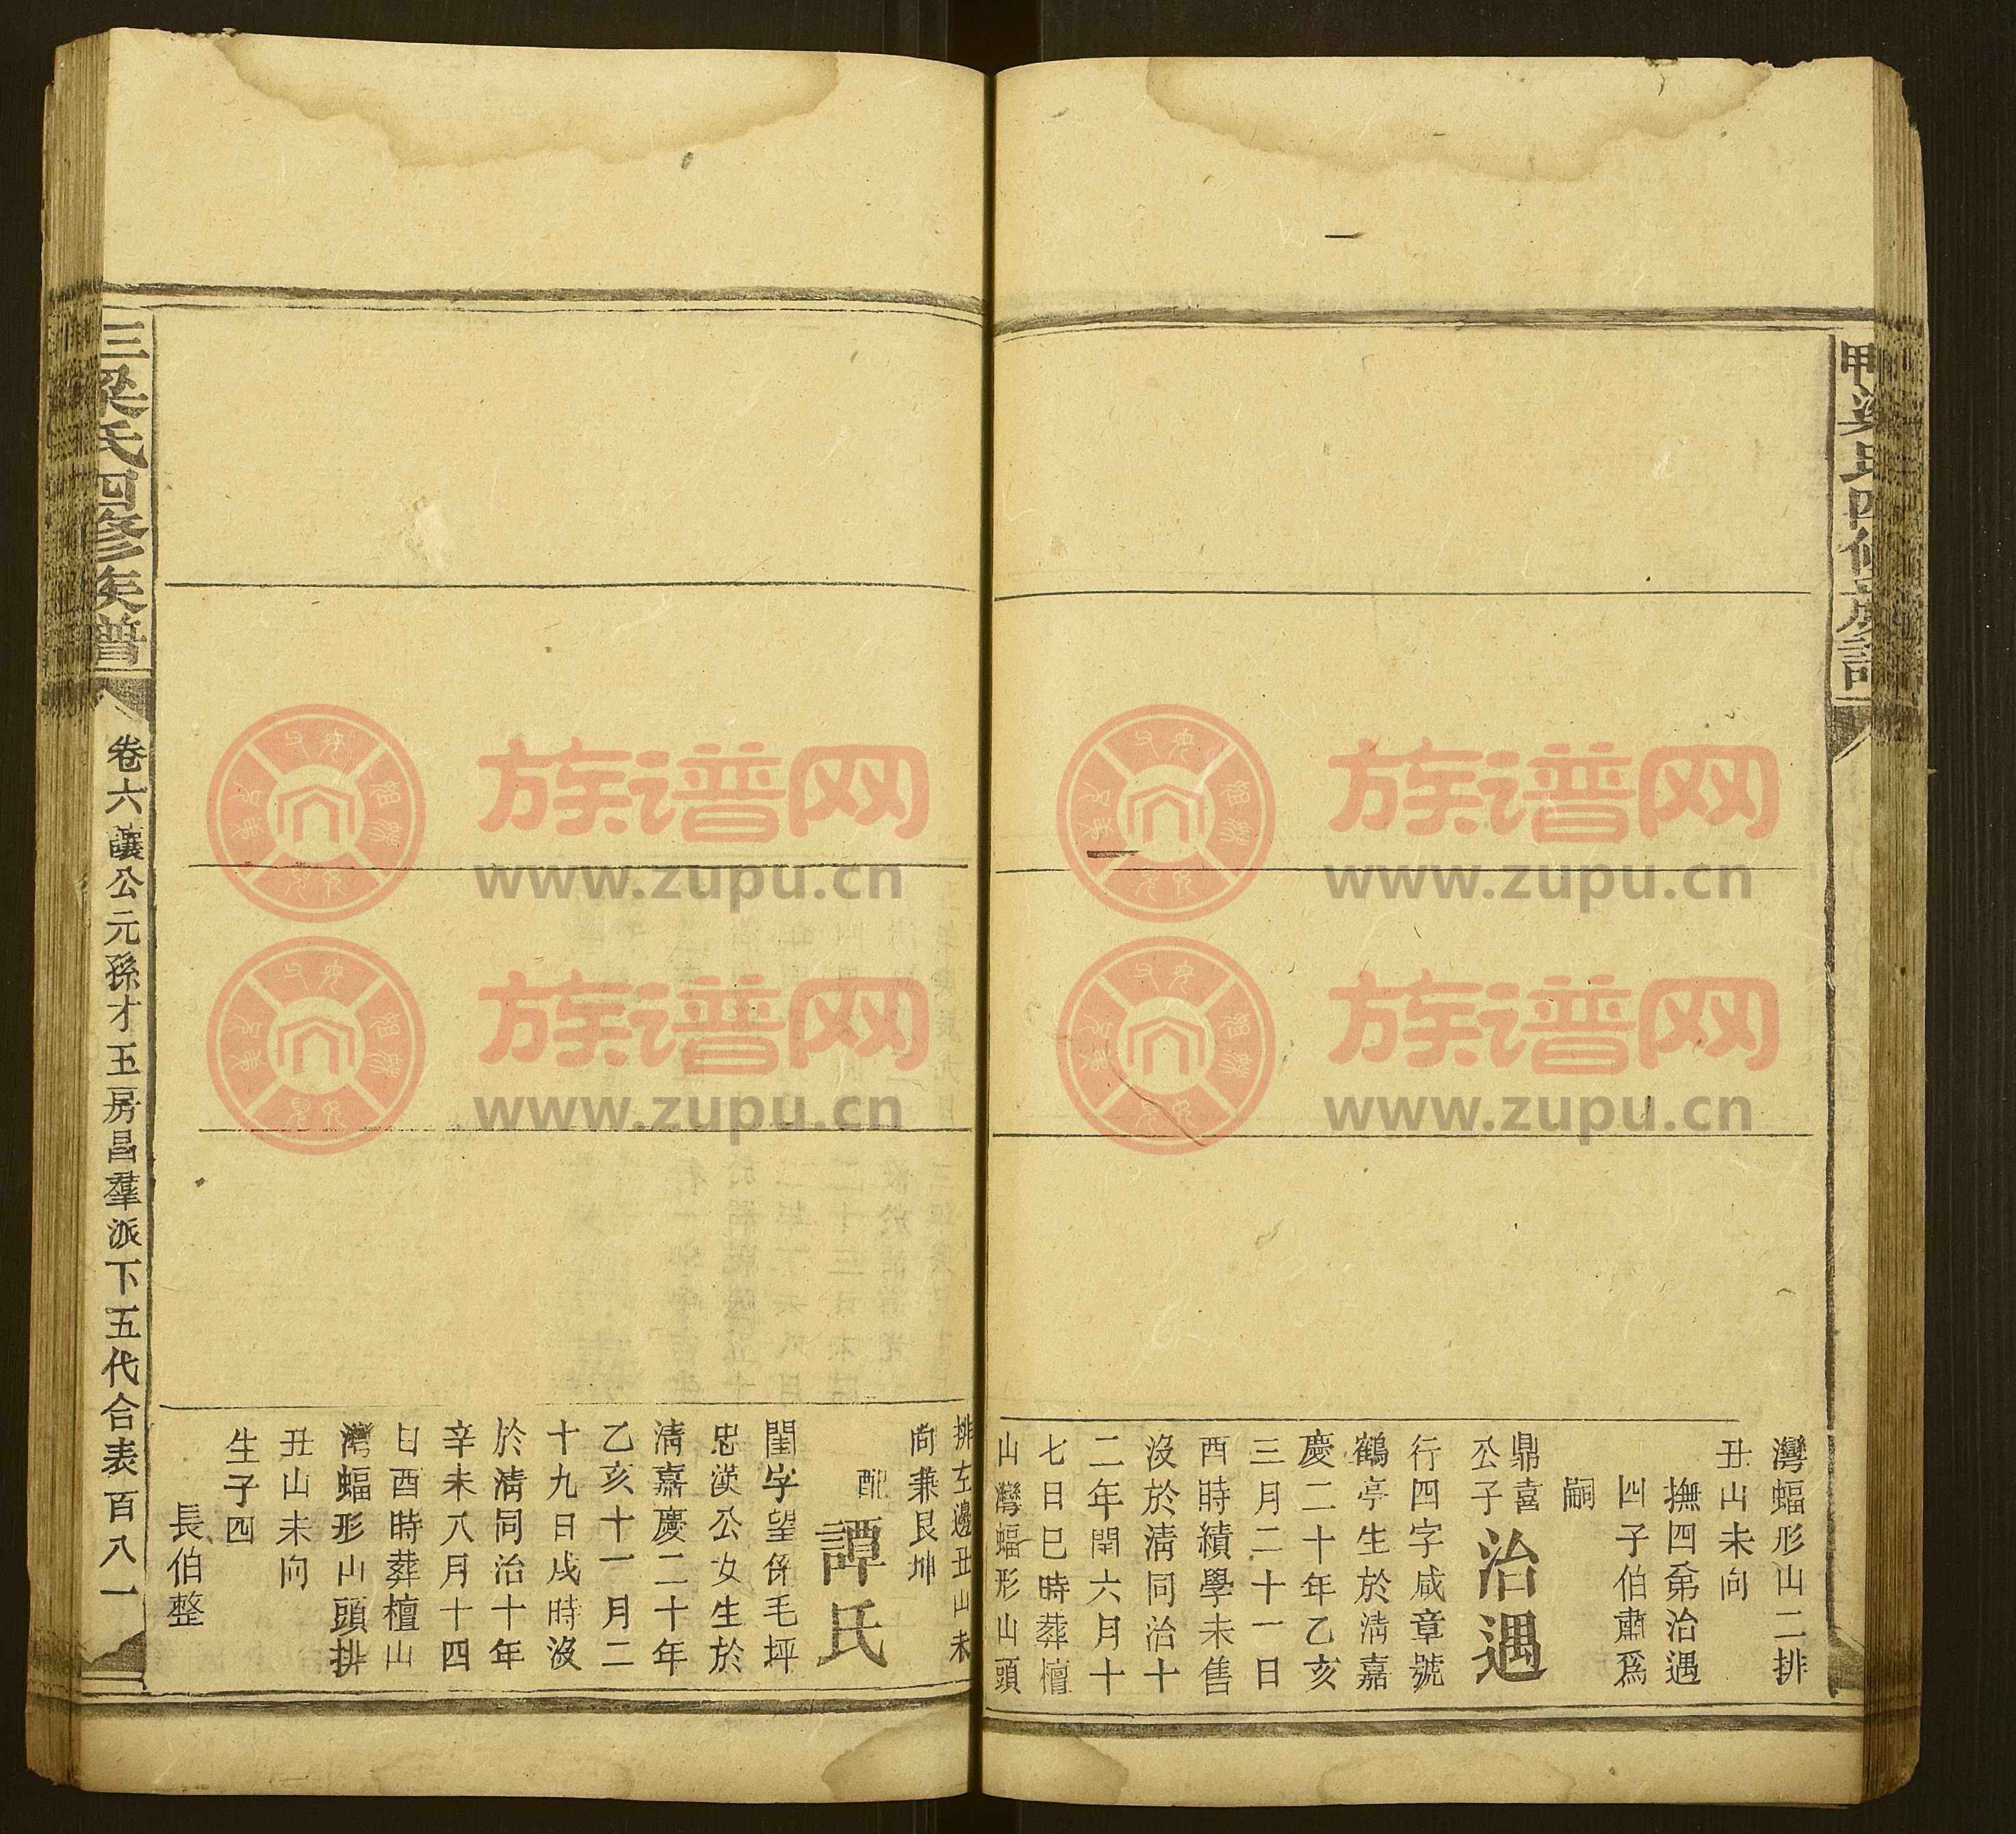 灣蝠形山二排
丑山未向
撫四弟治遇
四子伯肅爲
嗣
鼎喜
公子
治遇
行四字咸章號
鶴亭生於淸嘉
慶二十年乙亥
三月二十一日
酉時績學未售
沒於淸同治十
二年閏六月十
七日巳時葬檀
山灣蝠形山頭
排左邊丑山未
向兼艮坤
配
譚氏
閨字望係毛坪
忠漢公女生於
淸嘉慶二十年
乙亥十一月二
十九日戌時沒
於淸同治十年
辛未八月十四
日酉時葬檀山
灣蝠形山頭排
丑山未向
生子四
長伯整
三梁氏四修族譜
卷六讓公元孫才玉房昌羣派下五代合表百八一
族谱网
www.zupu.cn
族谱网
www.zupu.cn
族谱网
www.zupu.cn
族谱网
www.zupu.cn